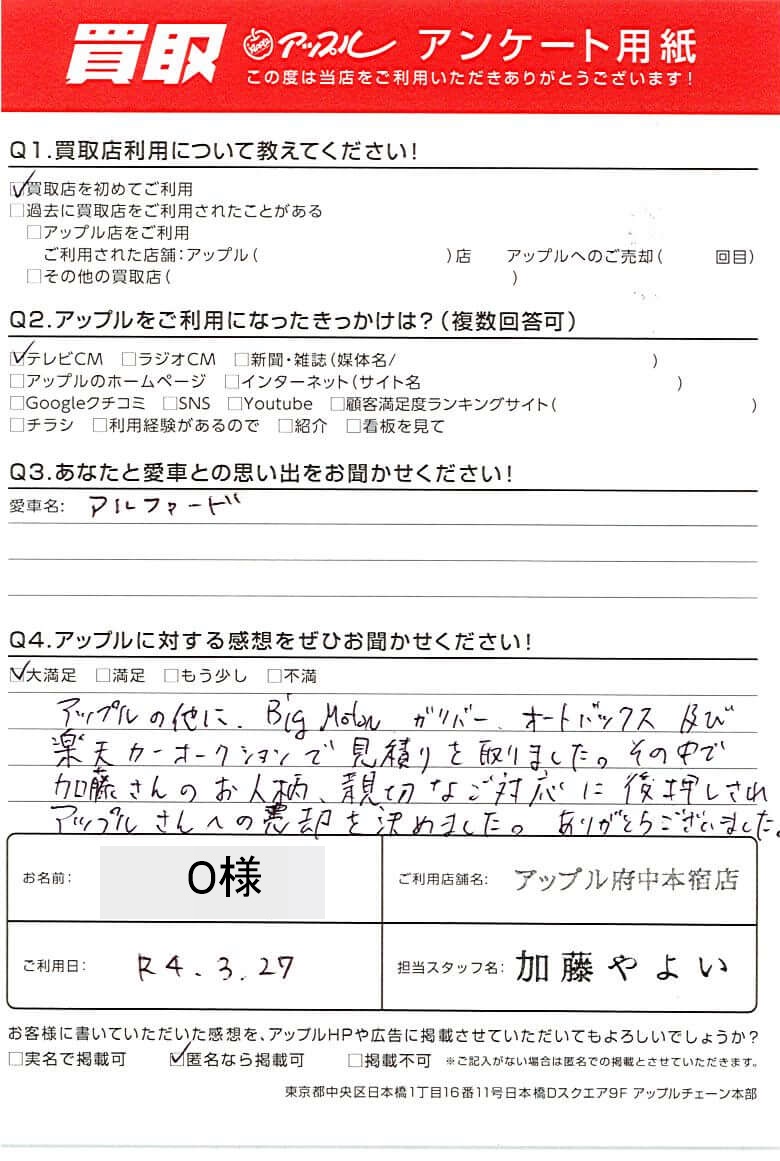 買取 Apple アップル アンケート用紙
この度は当店をご利用いただきありがとうございます!
Q1.買取店利用について教えてください!
☑買取店を初めてご利用
□過去に買取店をご利用されたことがある
□アップル店をご利用
ご利用された店舗:アップル( )店 アップルへのご売却( 回目)
□その他の買取店( )
Q2.アップルをご利用になったきっかけは?(複数回答可)
☑テレビCM □ラジオCM □新聞・雑誌(媒体名/ )
□アップルのホームページ □インターネット(サイト名 )
□Googleクチコミ □SNS □Youtube □顧客満足度ランキングサイト( )
□チラシ □利用経験があるので □紹介 □看板を見て
Q3.あなたと愛車との思い出をお聞かせください!
愛車名: アルファード
Q4.アップルに対する感想をぜひお聞かせください!
☑大満足 □満足 □もう少し □不満
アップルの他に、Big Motor ガリバー、オートバックス 及び
楽天カーオークションで見積りを取りました。その中で
加藤さんのお人柄、親切なご対応に後押しされ
アップルさんへの売却を決めました。ありがとうございました。
お名前: O様 ご利用店舗名: アップル府中本宿店
ご利用日: R4.3.27 担当スタッフ名: 加藤やよい
お客様に書いていただいた感想を、アップルHPや広告に掲載させていただいてもよろしいでしょうか?
□実名で掲載可 ☑匿名なら掲載可 □掲載不可 ※ご記入がない場合は匿名での掲載とさせていただきます。
東京都中央区日本橋1丁目16番11号日本橋Dスクエア9F アップルチェーン本部